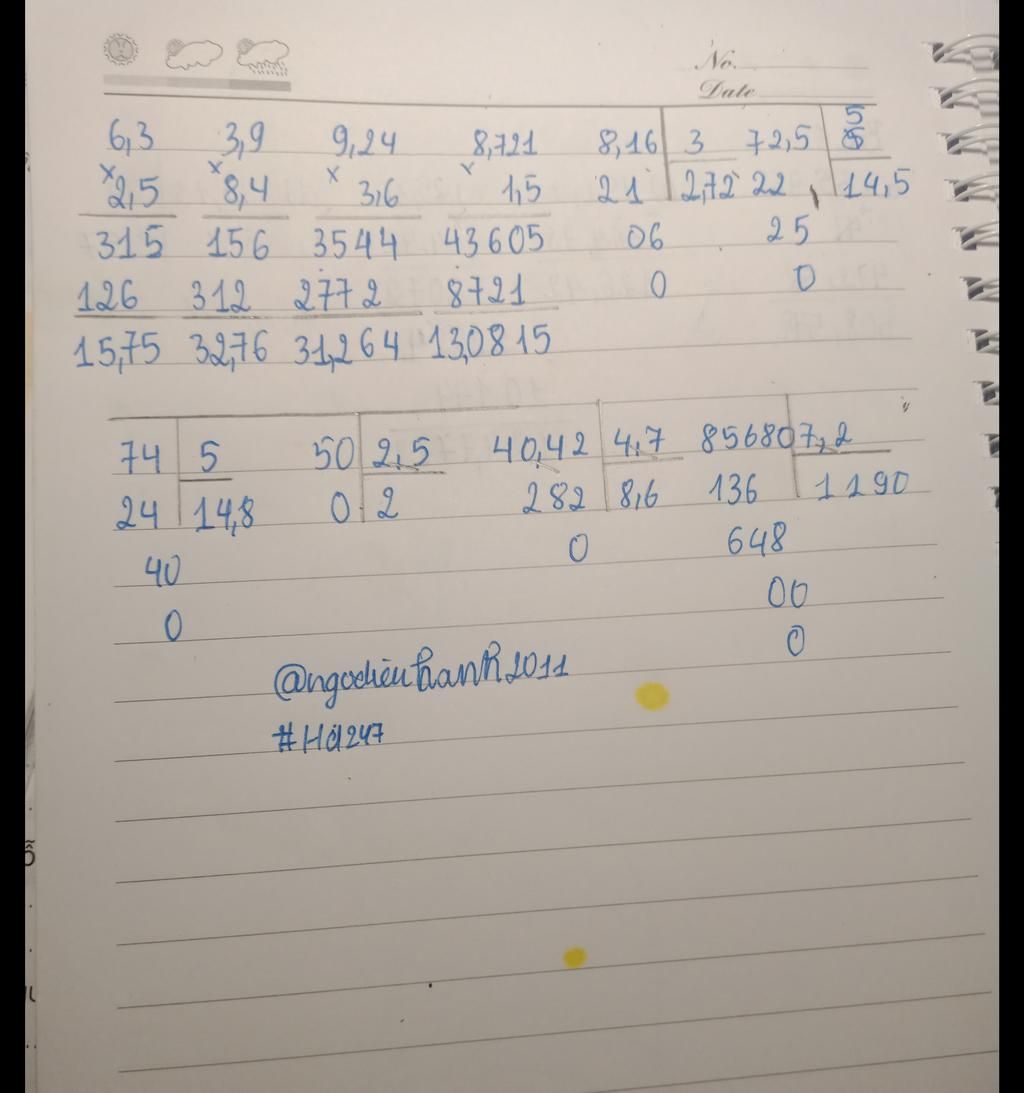 No.
Date
6,3 3,9 9,24 8,721 8,16 3 72,5 5
× 2,5 × 8,4 × 3,6 × 1,5 21 2,72 22 14,5
315 156 3544 43605 06 25
126 312 2772 8721 0 0
15,75 32,76 31,264 13,0815
74 5 50 2,5 40,42 4,7 85680 7,2
24 14,8 0 2 282 8,6 136 1190
40 0 648
0 00
0
#Hd247